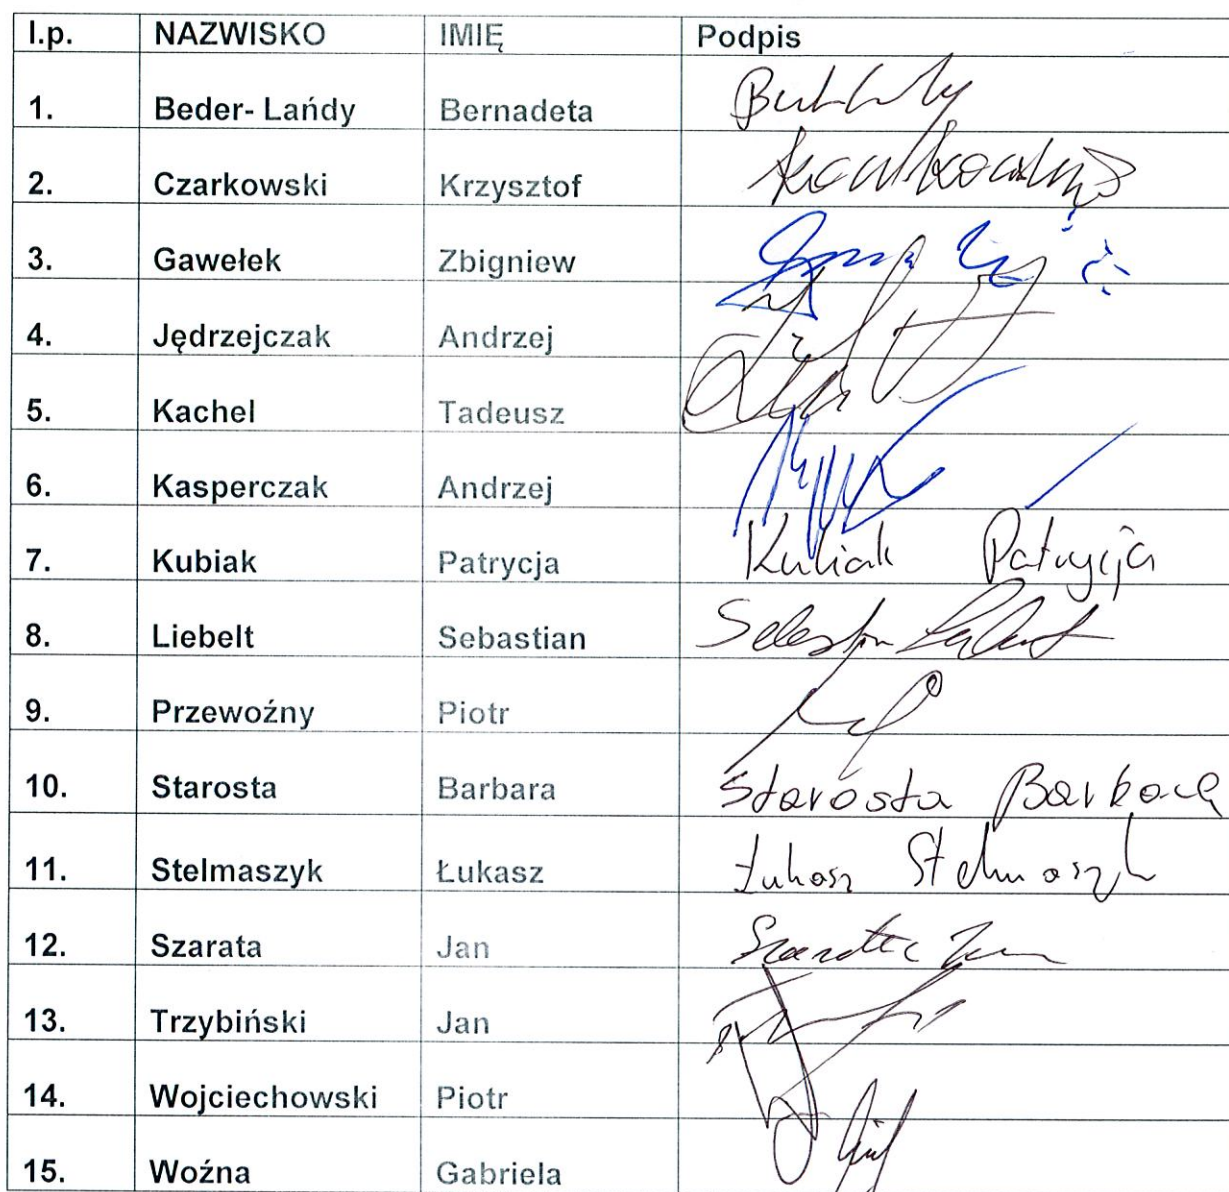 l.p. NAZWISKO IMIĘ Podpis
1. Beder- Lańdy Bernadeta
2. Czarkowski Krzysztof
3. Gawełek Zbigniew
4. Jędrzejczak Andrzej
5. Kachel Tadeusz
6. Kasperczak Andrzej
7. Kubiak Patrycja Kubiak Patrycja
8. Liebelt Sebastian
9. Przewoźny Piotr
10. Starosta Barbara Starosta Barbara
11. Stelmaszyk Łukasz Łukasz Stelmaszyk
12. Szarata Jan Szarata Jan
13. Trzybiński Jan
14. Wojciechowski Piotr
15. Woźna Gabriela